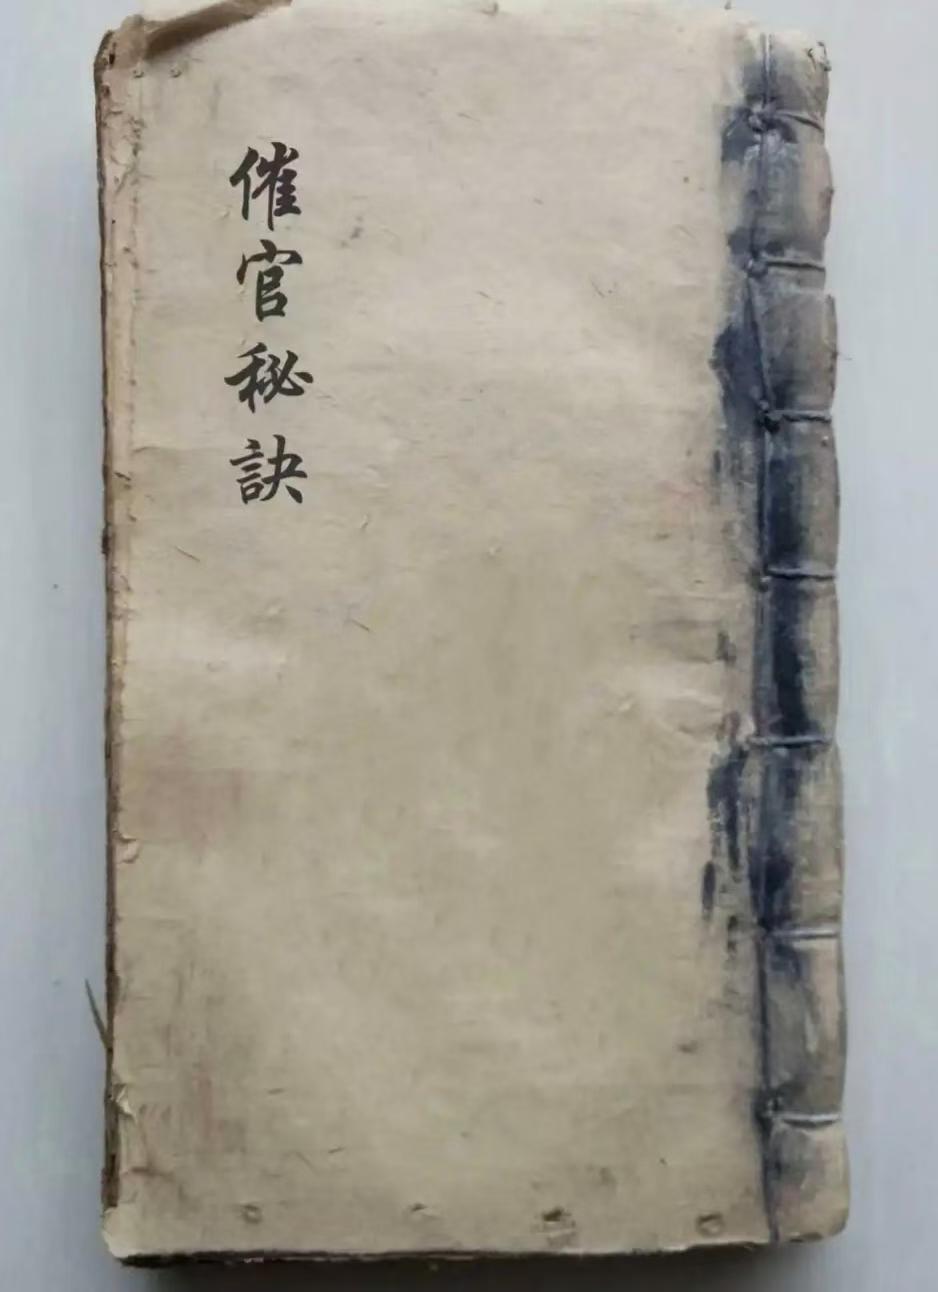 催官秘訣